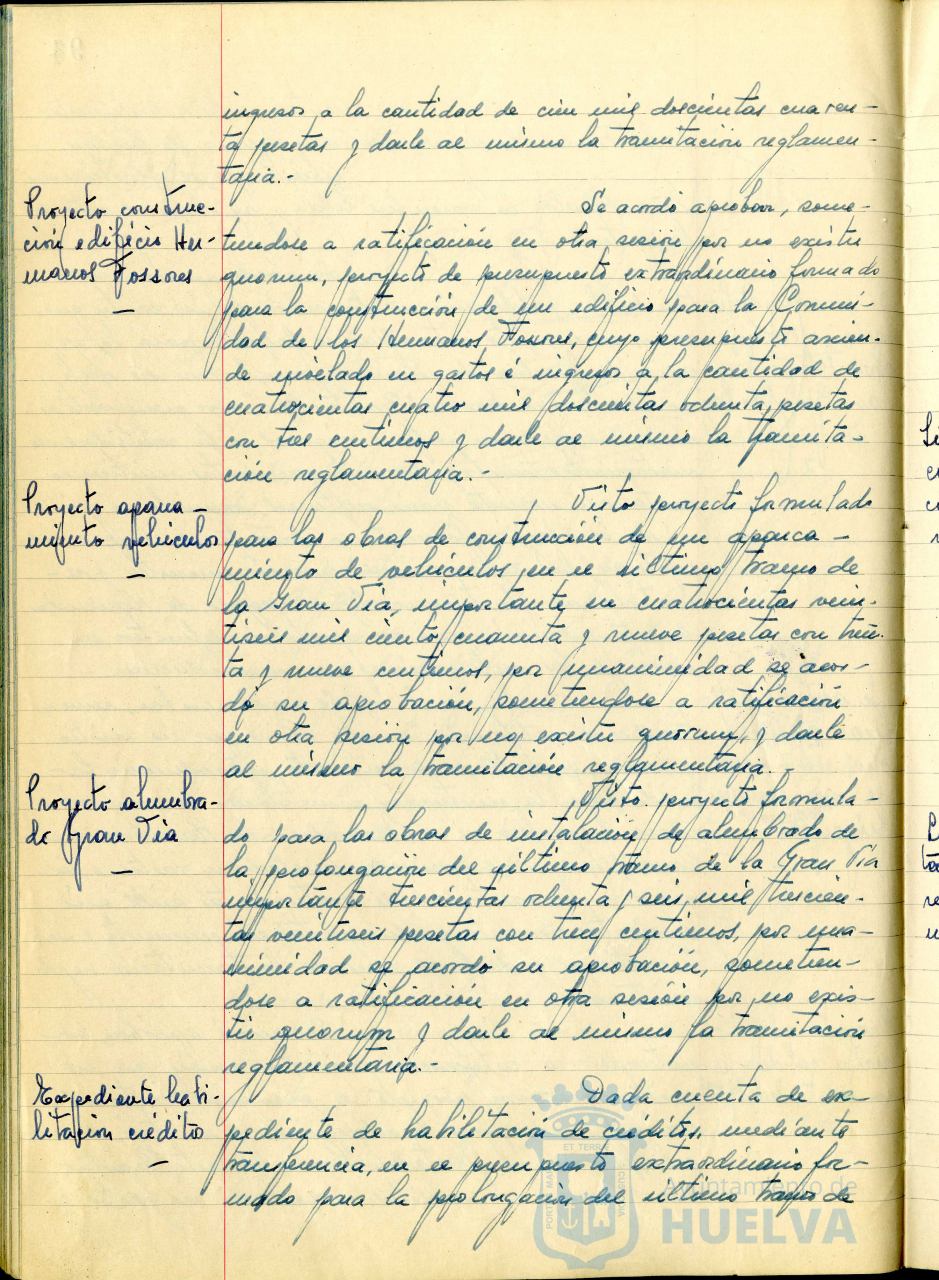 ingresos a la cantidad de cien mil doscientas cuaren-
ta pesetas y darle al mismo la tramitación reglamen-
taria.-
Proyecto construc-
ción edificio Her-
manos Fossores
Se acordó aprobar, some-
tiendose a ratificación en otra sesión por no existir
quorum, proyecto de presupuesto extraordinario formado
para la construcción de un edificio para la Comuni-
dad de los Hermanos Fossores, cuyo presupuesto ascien-
de nivelado en gastos é ingresos a la cantidad de
cuatrocientas cuatro mil doscientas ochenta pesetas
con tres centimos y darle al mismo la tramita-
ción reglamentaria.-
Proyecto aparca-
miento vehiculos
Visto proyecto formulado
para las obras de construcción de un aparca-
miento de vehículos en el último tramo de
la Gran Vía, importante en cuatrocientas vein-
tiseis mil ciento cuarenta y nueve pesetas con trein-
ta y nueve centimos, por unanimidad se acor-
dó su aprobación, sometiendose a ratificación
en otra sesión por no existir quorum, y darle
al mismo la tramitación reglamentaria.-
Proyecto alumbra-
do Gran Vía
Visto proyecto formula-
do para las obras de instalación de alumbrado de
la prolongación del último tramo de la Gran Vía
importante trescientas ochenta y seis mil trescien-
tas veintiseis pesetas con trece centimos, por una-
nimidad se acordó su aprobación, sometien-
dose a ratificación en otra sesión por no exis-
tir quorum y darle al mismo la tramitación
reglamentaria.-
Expediente habi-
litación créditos
Dada cuenta de ex-
pediente de habilitación de créditos, mediante
transferencia, en el presupuesto extraordinario for-
mado para la prolongación del último tramo de
Ayuntamiento de
HUELVA